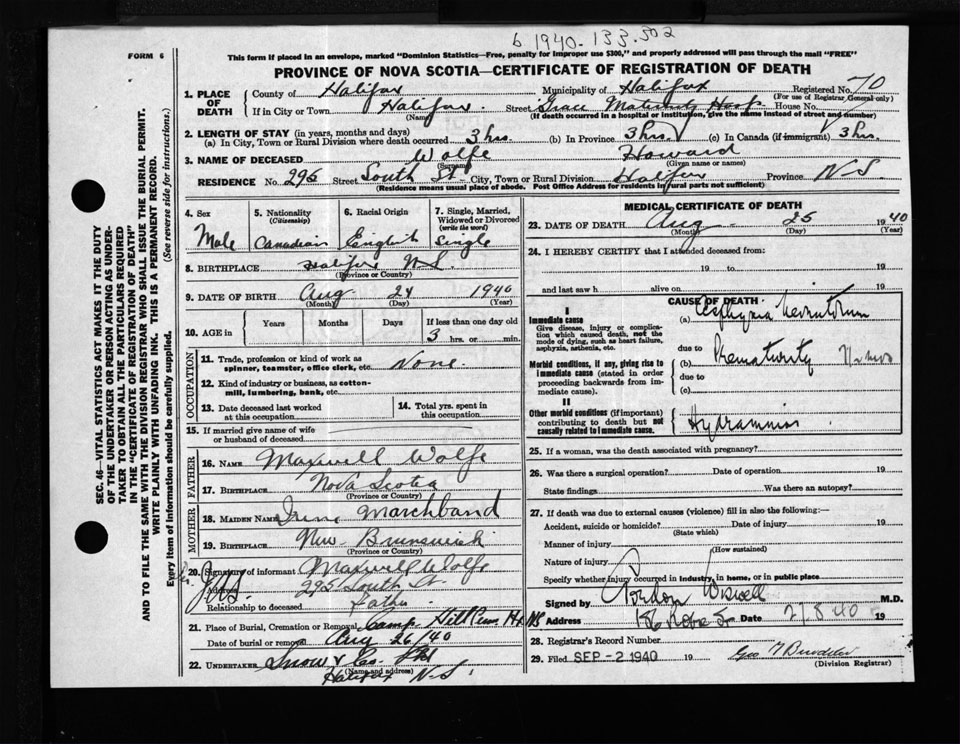 6 1940-133-502
FORM 6
This form if placed in an envelope, marked "Dominion Statistics—Free, penalty for improper use $300," and properly addressed will pass through the mail "FREE"
PROVINCE OF NOVA SCOTIA—CERTIFICATE OF REGISTRATION OF DEATH
1. PLACE OF DEATH
County of Halifax Municipality of Halifax Registered No. 70
(For use of Registrar General only)
If in City or Town Halifax Street Grace Maternity Hosp House No.
(Name) (If death occurred in a hospital or institution, give the name instead of street and number)
2. LENGTH OF STAY (in years, months and days)
(a) In City, Town or Rural Division where death occurred 3 hrs. (b) In Province 3 hrs (c) In Canada (if immigrant) 3 hrs.
3. NAME OF DECEASED Wolfe Howard
(Surname) (Given name or names)
RESIDENCE No. 295 Street South St. City, Town or Rural Division Halifax Province N.S.
(Residence means usual place of abode. Post Office Address for residents in rural parts not sufficient)
4. Sex
Male
5. Nationality
(Citizenship)
Canadian
6. Racial Origin
English
7. Single, Married, Widowed or Divorced
(write the word)
Single
8. BIRTHPLACE Halifax N.S.
(Province or Country)
9. DATE OF BIRTH Aug 24 1940
(Month) (Day) (Year)
10. AGE in
Years Months Days If less than one day old
3 hrs. or min.
OCCUPATION
11. Trade, profession or kind of work as spinner, teamster, office clerk, etc. None.
12. Kind of industry or business, as cotton-mill, lumbering, bank, etc.
13. Date deceased last worked at this occupation
14. Total yrs. spent in this occupation
15. If married give name of wife or husband of deceased
FATHER
16. NAME Maxwell Wolfe
17. BIRTHPLACE Nova Scotia
(Province or Country)
MOTHER
18. MAIDEN NAME Irene Marchband
19. BIRTHPLACE New Brunswick
(Province or Country)
20. Signature of informant Maxwell Wolfe
Address 295 South St.
Relationship to deceased Father
21. Place of Burial, Cremation or Removal Camp Hill Cem. Hx NS
Date of burial or removal Aug 26/40
22. UNDERTAKER Snow & Co. Ltd
(Name and address)
Halifax N.S.
MEDICAL CERTIFICATE OF DEATH
23. DATE OF DEATH Aug 25 1940
(Month) (Day) (Year)
24. I HEREBY CERTIFY that I attended deceased from:
19 to 19
and last saw h alive on 19
CAUSE OF DEATH
I
Immediate cause
Give disease, injury or complication which caused death, not the mode of dying, such as heart failure, asphyxia, asthenia, etc.
(a) Asphyxia Neonatorum
due to
Morbid conditions, if any, giving rise to immediate cause (stated in order proceeding backwards from immediate cause).
(b) Prematurity
due to
(c)
II
Other morbid conditions (if important) contributing to death but not causally related to immediate cause.
Hydramnios
25. If a woman, was the death associated with pregnancy?
26. Was there a surgical operation? Date of operation 19
State findings Was there an autopsy?
27. If death was due to external causes (violence) fill in also the following:—
Accident, suicide or homicide? Date of injury 19
(State which)
Manner of injury
(How sustained)
Nature of injury
Specify whether injury occurred in industry, in home, or in public place
Signed by Gordon Wiswell M.D.
Address Robie St Date 19
28. Registrar's Record Number
29. Filed SEP -2 1940 19
(Division Registrar)
SEC. 46—VITAL STATISTICS ACT MAKES IT THE DUTY
OF THE UNDERTAKER OR PERSON ACTING AS UNDER-
TAKER TO OBTAIN ALL THE PARTICULARS REQUIRED
IN THE "CERTIFICATE OF REGISTRATION OF DEATH"
AND TO FILE THE SAME WITH THE DIVISION REGISTRAR WHO SHALL ISSUE THE BURIAL PERMIT.
WRITE PLAINLY WITH UNFADING INK. THIS IS A PERMANENT RECORD.
Every item of information should be carefully supplied. (See reverse side for instructions.)